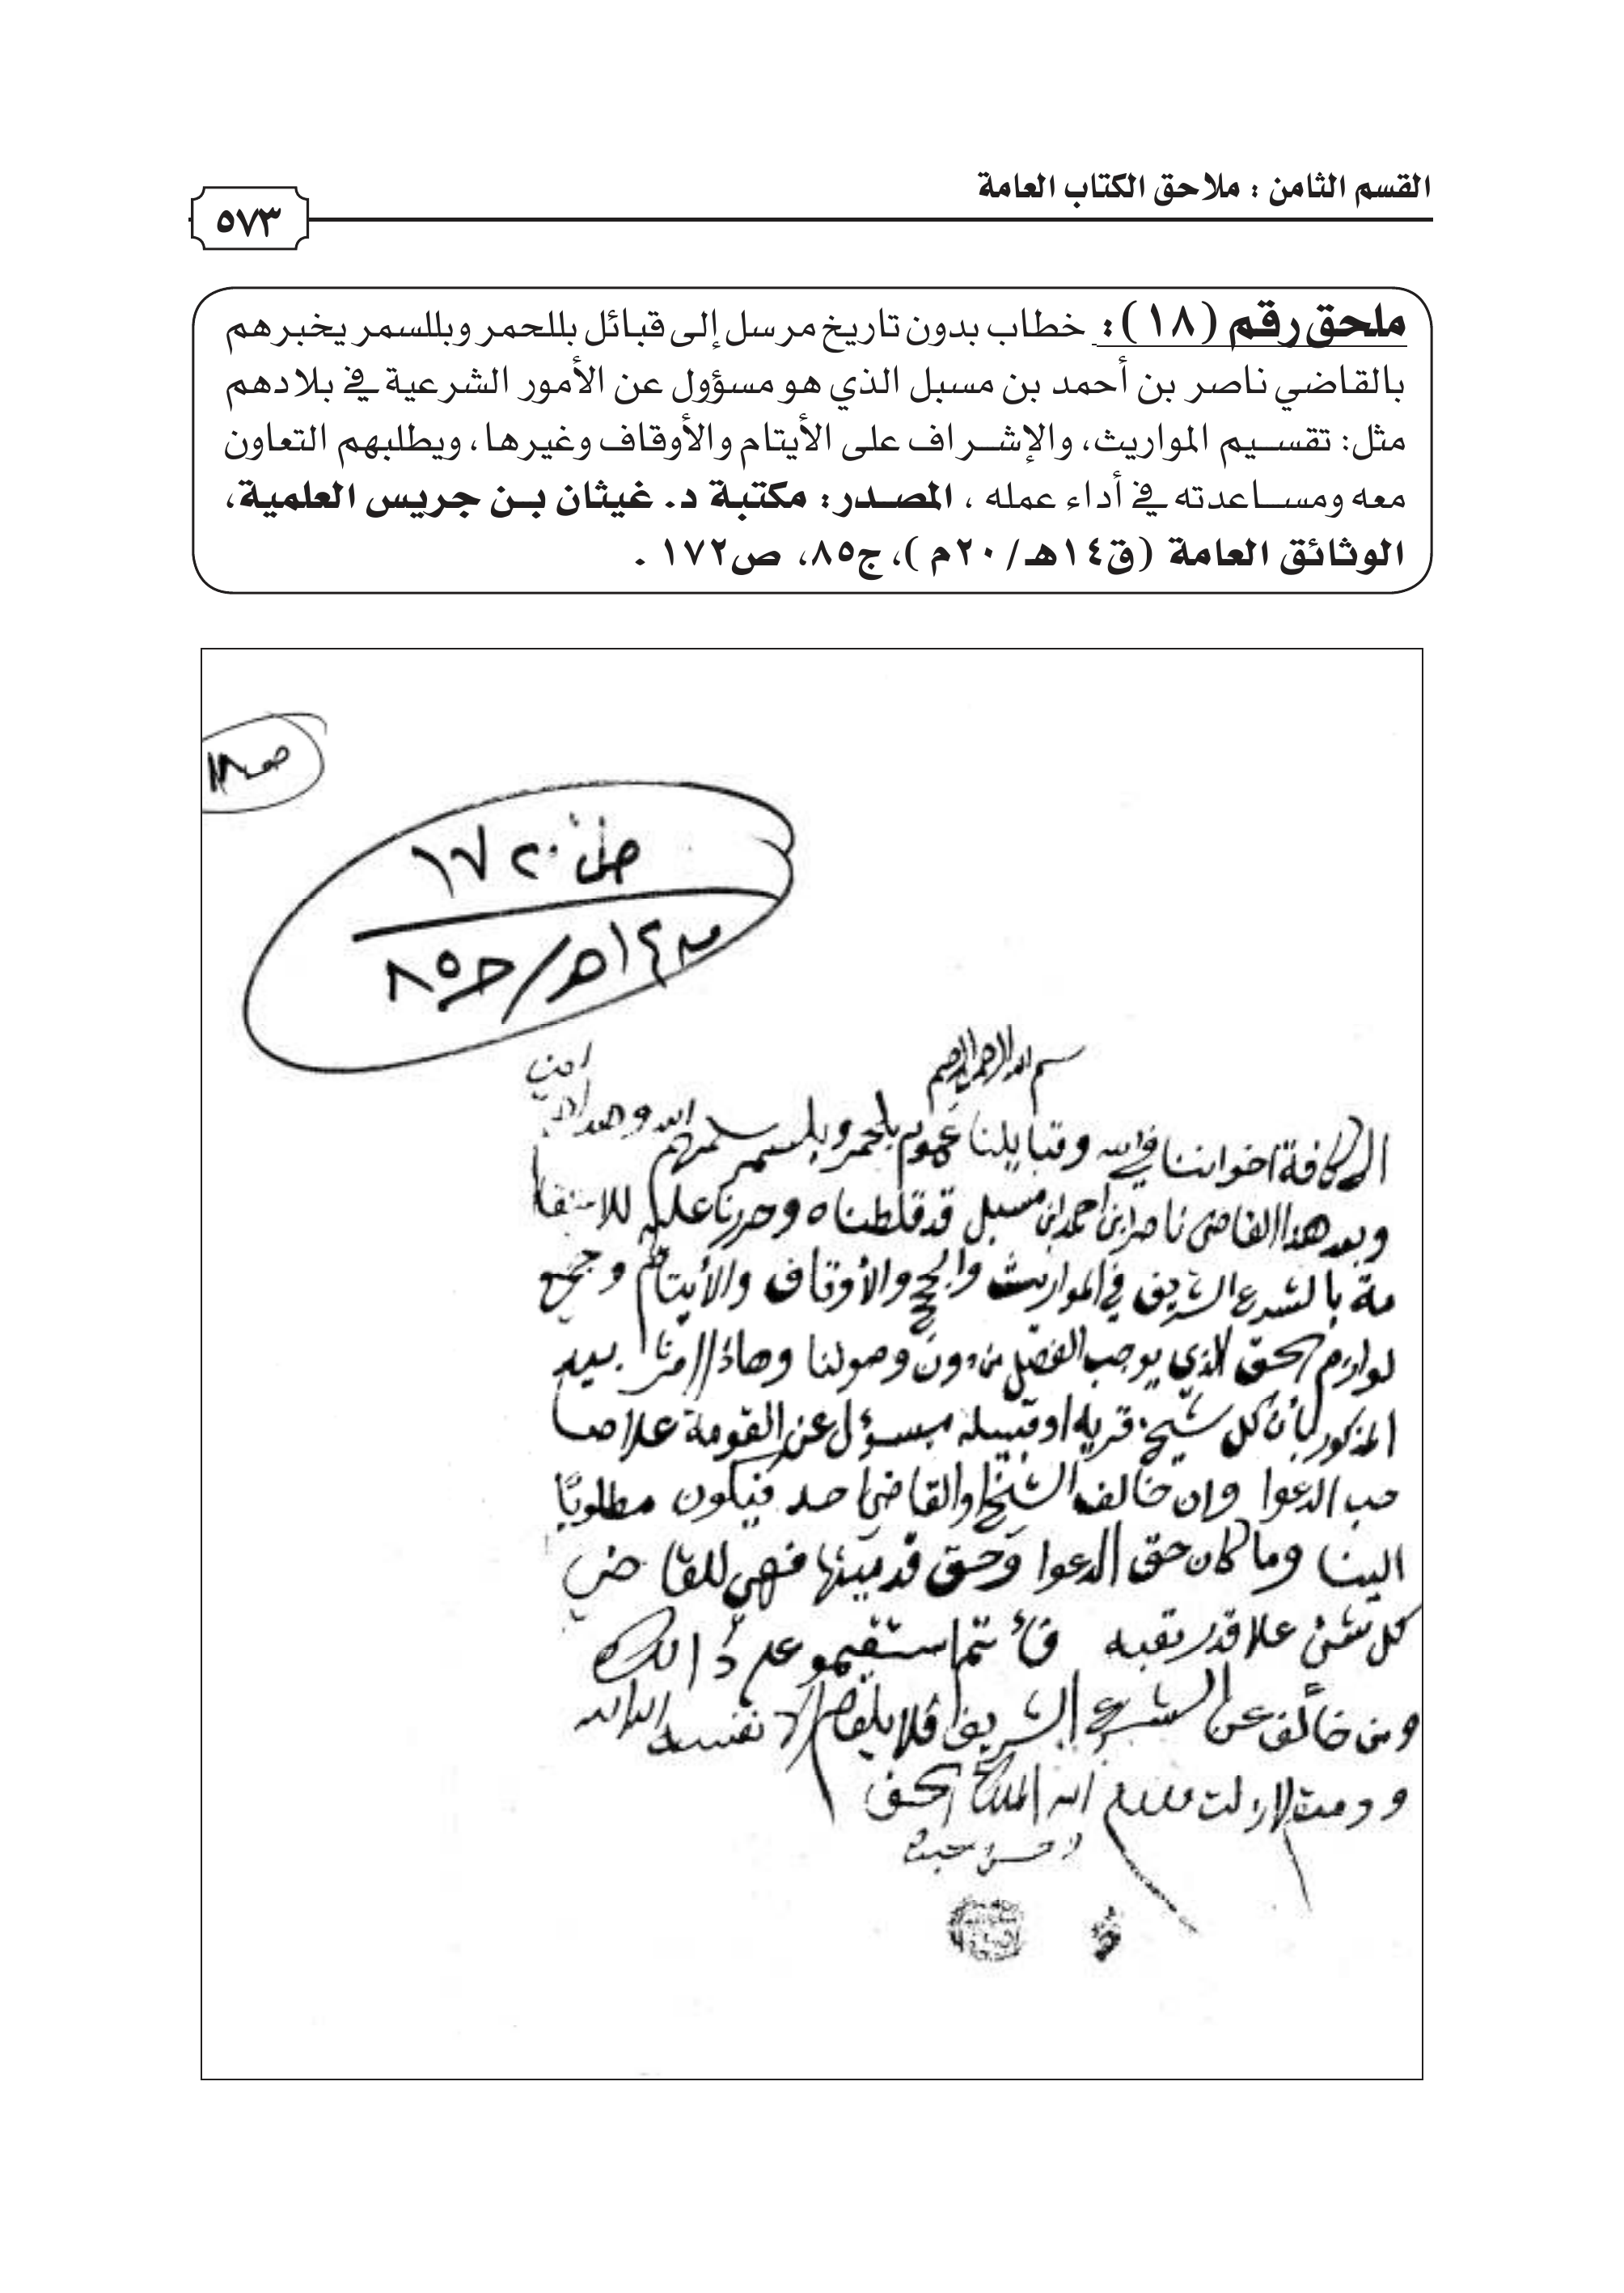 القسم الثامن : ملاحق الكتاب العامة
٥٧٣
ملحق رقم (١٨): خطاب بدون تاريخ مرسل إلى قبائل بللحمر وبللسمر يخبرهم
بالقاضي ناصر بن أحمد بن مسبل الذي هو مسؤول عن الأمور الشرعية في بلادهم
مثل: تقسيم المواريث، والإشراف على الأيتام والأوقاف وغيرها، ويطلبهم التعاون
معه ومساعدته في أداء عمله ، المصدر: مكتبة د. غيثان بن جريس العلمية،
الوثائق العامة (ق١٤هـ/٢٠م)، ج٨٥، ص١٧٢ .
ص١٨
ص ١٧٢
١٤هـ/ج٨٥
بسم الله الرحمن الرحيم
امين
الى كافة اخواننا في الله وقبايلنا عموم بلحمر وبلسمر سلمهم الله وهداهم
وبعد هذا القاضي ناصر ابن احمد ابن مسبل قد قلطناه وحررنا عليه للاستقا
مة بالشرع الشريف في المواريث والحجج والأوقاف والأيتام وجميع
لوازم الحق الذي يوجب الفصل من دون وصولنا وهاذا امرنا بيد
المذكور بأن كل شيخ قريه او قبيله مسؤل عن القومة علا صا
حب الدعوا وان خالف الشيخ او القاضي احد فيكون مطلوبًا
الينا وما كان حق الدعوا وحق قد فهي للقاضي
كل شئ علا قدر تعبه فأنتم استقيمو على ذالك
ومن خالف عن الشرع الشريف فلا يلقا الا نفسه
الله الملك الحق